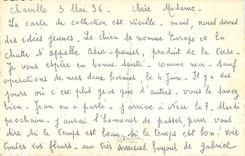 Chaville 3 Mai 36 — Chère Madame.
La carte de collection est vieille — mais, nous avons
des idées jeunes. Le chien se nomme Europe et la
chatte s'appelle Asie, produit de la Corse.
Je vous espère en bonne santé — comme moi — Sauf
opérations de mes deux le 4 Juin. Il y a des
jours où c'est plus gros que d'autres — vous le savez
bien. Jean en a parlé — j'arrive à Nice le 7. Mardi
prochain, j'aurai l'honneur de passer pour vous
dire si le temps est beau, si le temps est bon ! Voir
toutes vos fleurs — un très amical bonjour de Gabriel